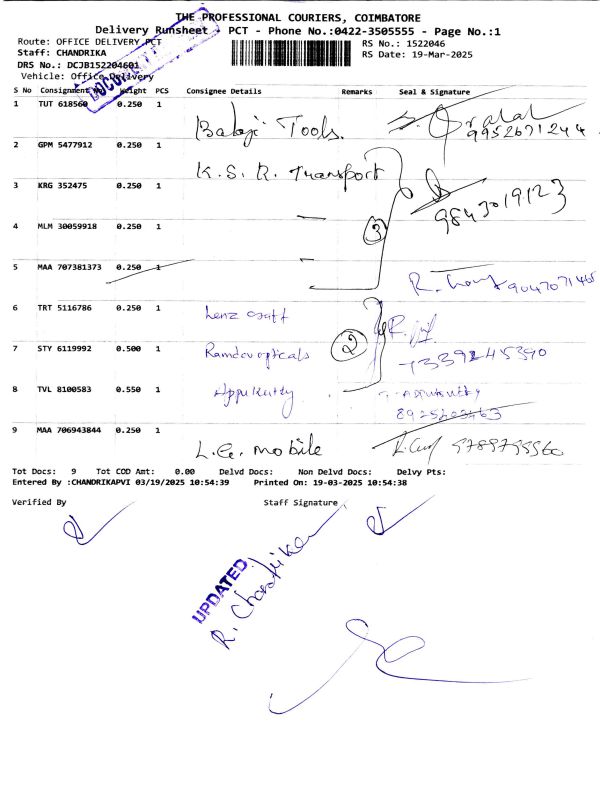 THE PROFESSIONAL COURIERS, COIMBATORE
Delivery Runsheet - PCT - Phone No.:0422-3505555 - Page No.:1
Route: OFFICE DELIVERY PCT
RS No.: 1522046
Staff: CHANDRIKA
RS Date: 19-Mar-2025
DRS No.: DCJB152204601
Vehicle: Office Delivery
S No Consignment No Weight PCS Consignee Details Remarks Seal & Signature
1 TUT 618560 0.250 1 Balaji Tools. 9952671244
2 GPM 5477912 0.250 1 K.S.R. Transport
3 KRG 352475 0.250 1 9843019123
4 MLM 30059918 0.250 1 3
5 MAA 707381373 0.250 1 R.
6 TRT 5116786 0.250 1 Lenz R.
7 STY 6119992 0.500 1 Ramdev opticals 2 7339245390
8 TVL 8100583 0.550 1 Appu kutty
9 MAA 706943844 0.250 1 L.G. mobile
Tot Docs: 9 Tot COD Amt: 0.00 Delvd Docs: Non Delvd Docs: Delvy Pts:
Entered By :CHANDRIKAPVI 03/19/2025 10:54:39 Printed On: 19-03-2025 10:54:38
Verified By Staff Signature
UPDATED
R. Chandrika